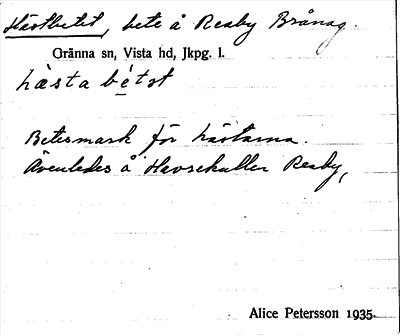 Hästbetet, bete å Reaby Brånag.
Gränna sn, Vista hd, Jkpg. l.
hàsta bétət
Betesmark för hästarna.
Ävenledes å Reaby,
Alice Petersson 1935.